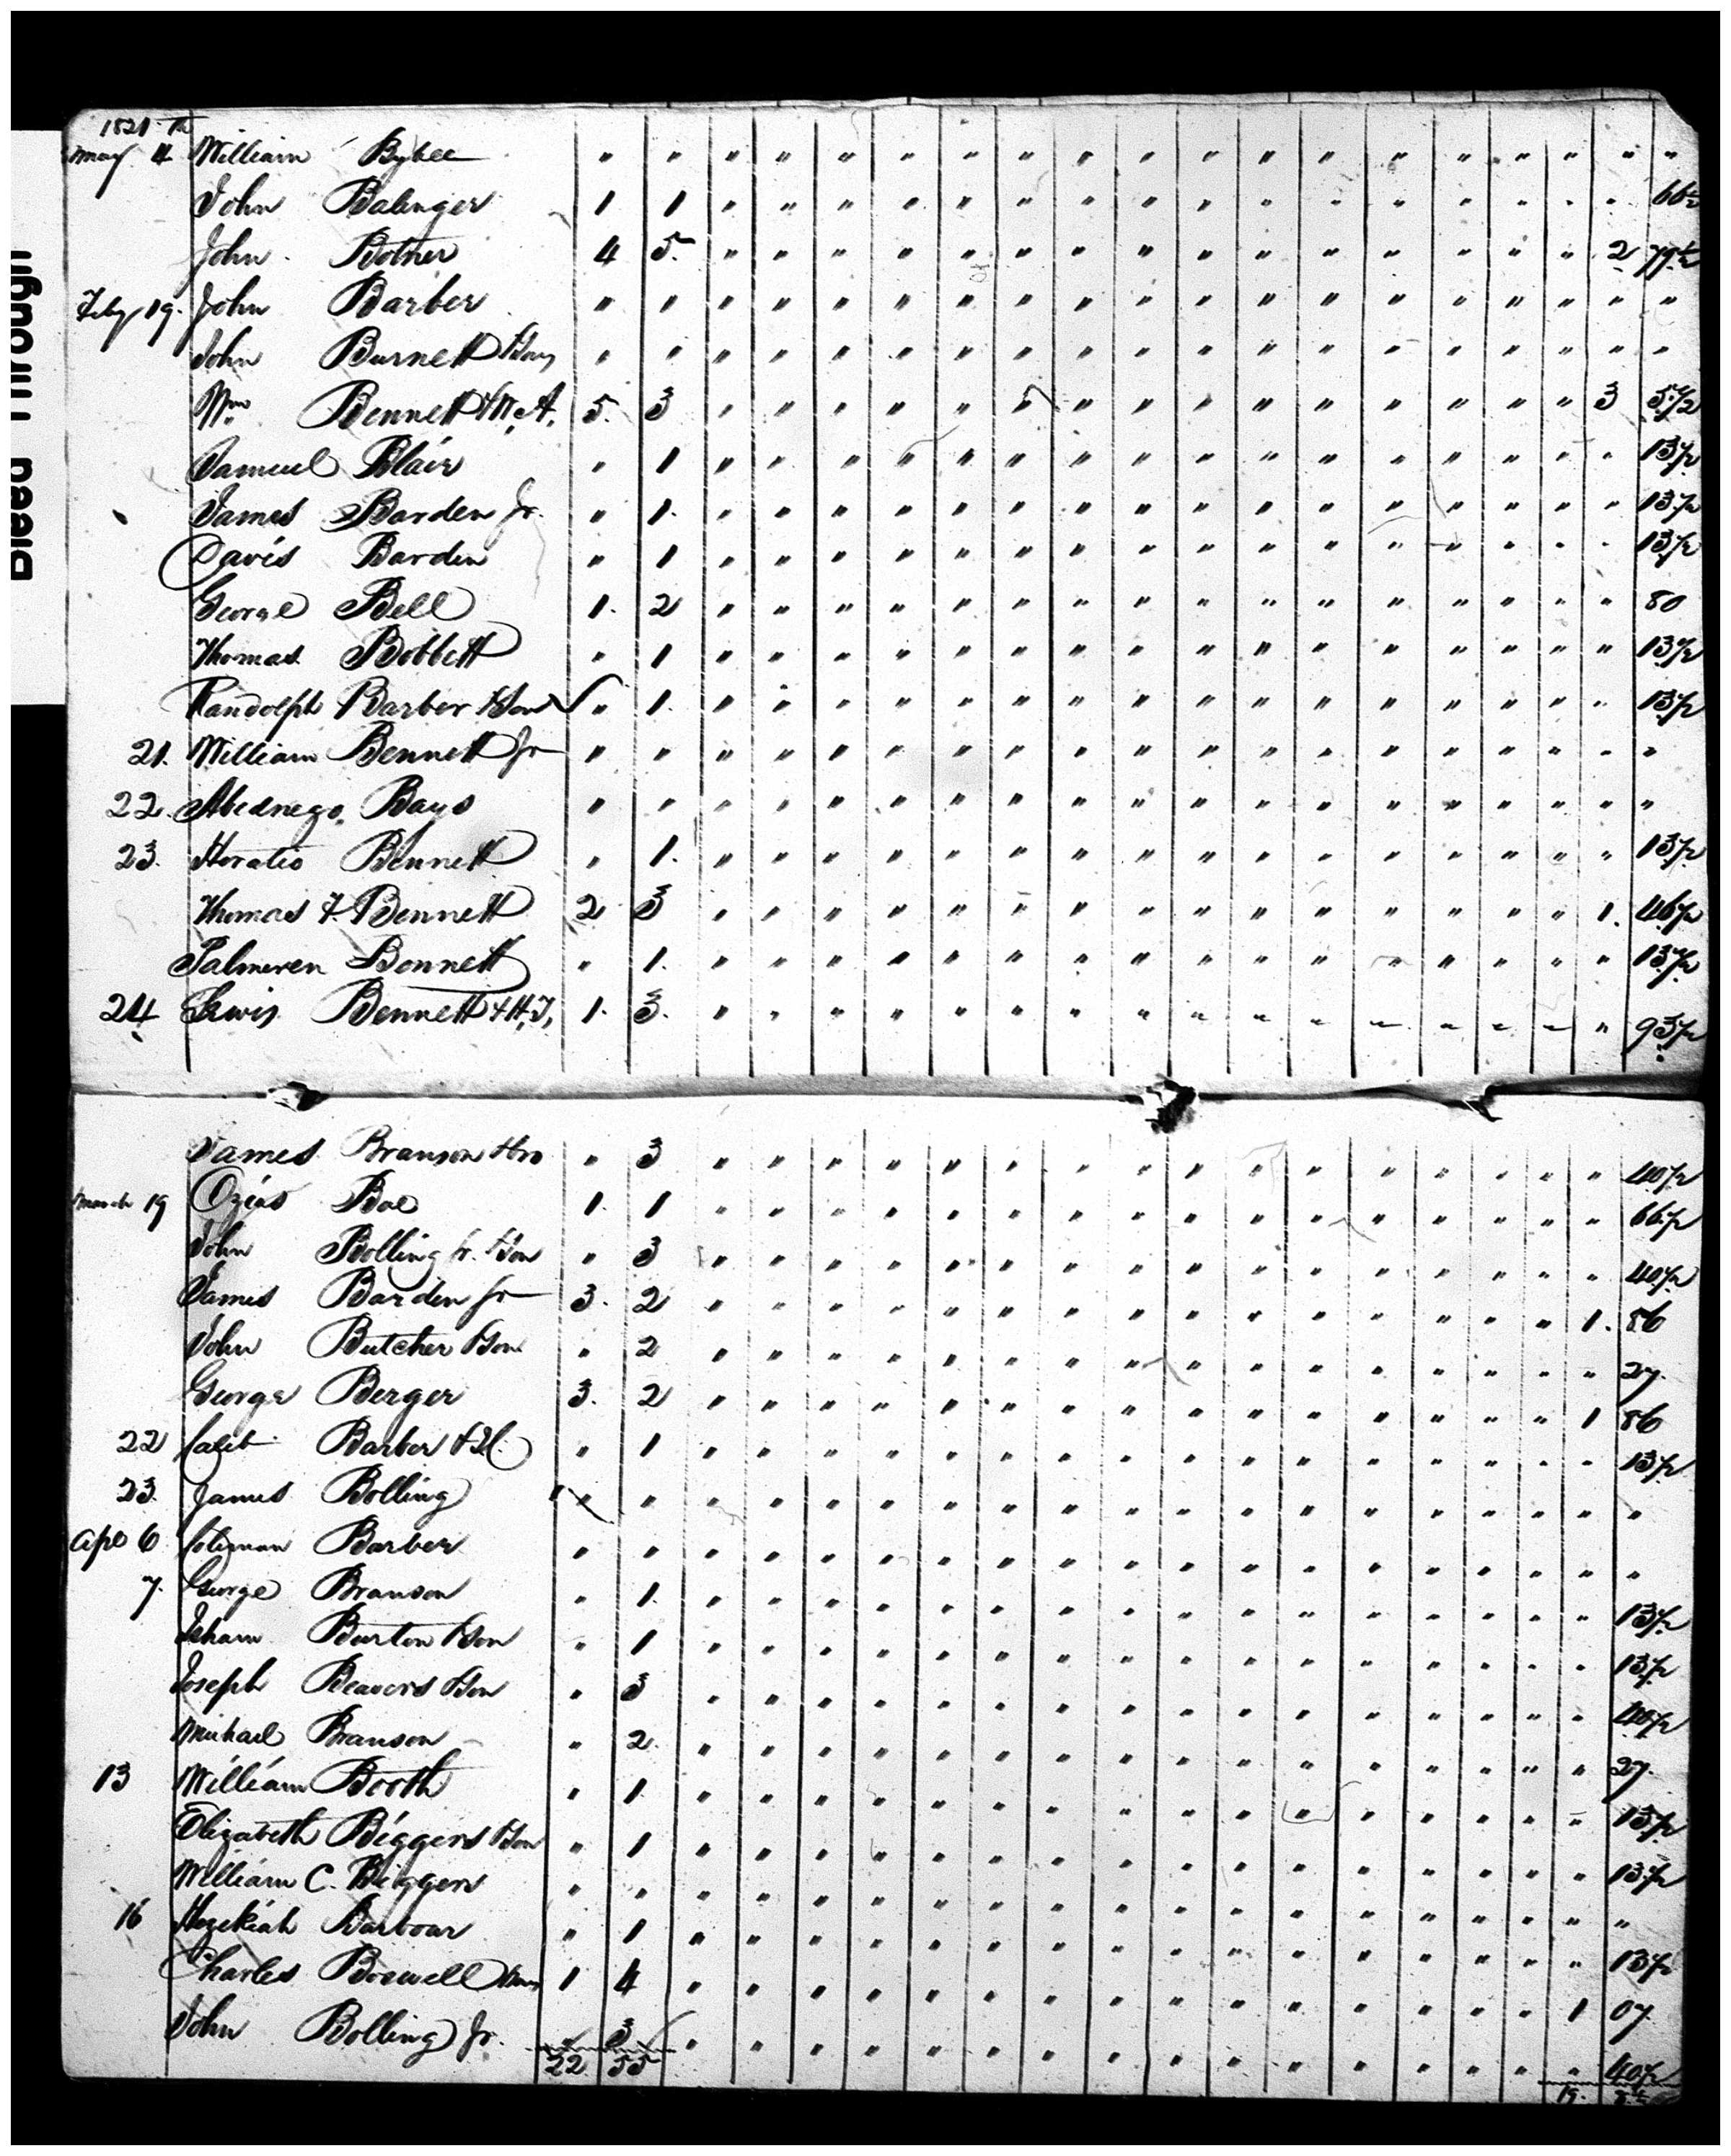 1821
May 4 William Bybee " " " " " " " " " " " " " " " " " " "
John Balenger 1 1 " " " " " " " " " " " " " " " " 66½
John Botner 4 5 " " " " " " " " " " " " " " " 2 79½
Feby 19. John Barber " " " " " " " " " " " " " " " " " " "
John Burnett & Son " " " " " " " " " " " " " " " " " " "
Wm Bennett & W. A. 5. 3 " " " " " " " " " " " " " " " 3 5½
Samuel Blair " 1 " " " " " " " " " " " " " " " " 13½
James Barden Jr. " 1. " " " " " " " " " " " " " " " " 13½
Davis Barden " 1 " " " " " " " " " " " " " " " " 13½
George Bell 1. 2 " " " " " " " " " " " " " " " " 80
Thomas Bobbett " 1 " " " " " " " " " " " " " " " " 13½
Randolph Barber & Son " 1. " " " " " " " " " " " " " " " " 13½
21. William Bennett Jr " " " " " " " " " " " " " " " " " " "
22. Abednego Bays " " " " " " " " " " " " " " " " " " "
23. Horatio Bennett " 1. " " " " " " " " " " " " " " " " 13½
Thomas F. Bennett 2 3 " " " " " " " " " " " " " " " 1. 46½
Palmeren Bennett " 1. " " " " " " " " " " " " " " " " 13½
24 Lewis Bennett & H. T. 1. 3. " " " " " " " " " " " " " " " " 93½
James Branson " 3 " " " " " " " " " " " " " " " " 40½
March 19 Ozias Boe 1. 1 " " " " " " " " " " " " " " " " 66½
John Bolling Sr. & Son " 3 " " " " " " " " " " " " " " " " 40½
James Barden Sr 3. 2 " " " " " " " " " " " " " " " 1. 86
John Butcher & Son " 2 " " " " " " " " " " " " " " " " 27.
George Berger 3. 2 " " " " " " " " " " " " " " " 1 86
22 Caleb Barber " 1 " " " " " " " " " " " " " " " " 13½
23. James Bolling " " " " " " " " " " " " " " " " " " "
Apl 6 Coleman Barber " " " " " " " " " " " " " " " " " " "
7. George Branson " 1. " " " " " " " " " " " " " " " " 13½
Isham Burton & Son " 1 " " " " " " " " " " " " " " " " 13½
Joseph Beavers & Son " 3 " " " " " " " " " " " " " " " " 40½
Michael Branson " 2. " " " " " " " " " " " " " " " " 27.
13 William Booth " 1. " " " " " " " " " " " " " " " " 13½
Elizabeth Biggers & Son " 1 " " " " " " " " " " " " " " " " 13½
William C. Biggers " " " " " " " " " " " " " " " " " " "
16 Hezekiah Barbour " 1 " " " " " " " " " " " " " " " " 13½
Charles Boswell 1 4 " " " " " " " " " " " " " " " 1 07
John Bolling Jr. " 3 " " " " " " " " " " " " " " " " 40½
22 55 19.